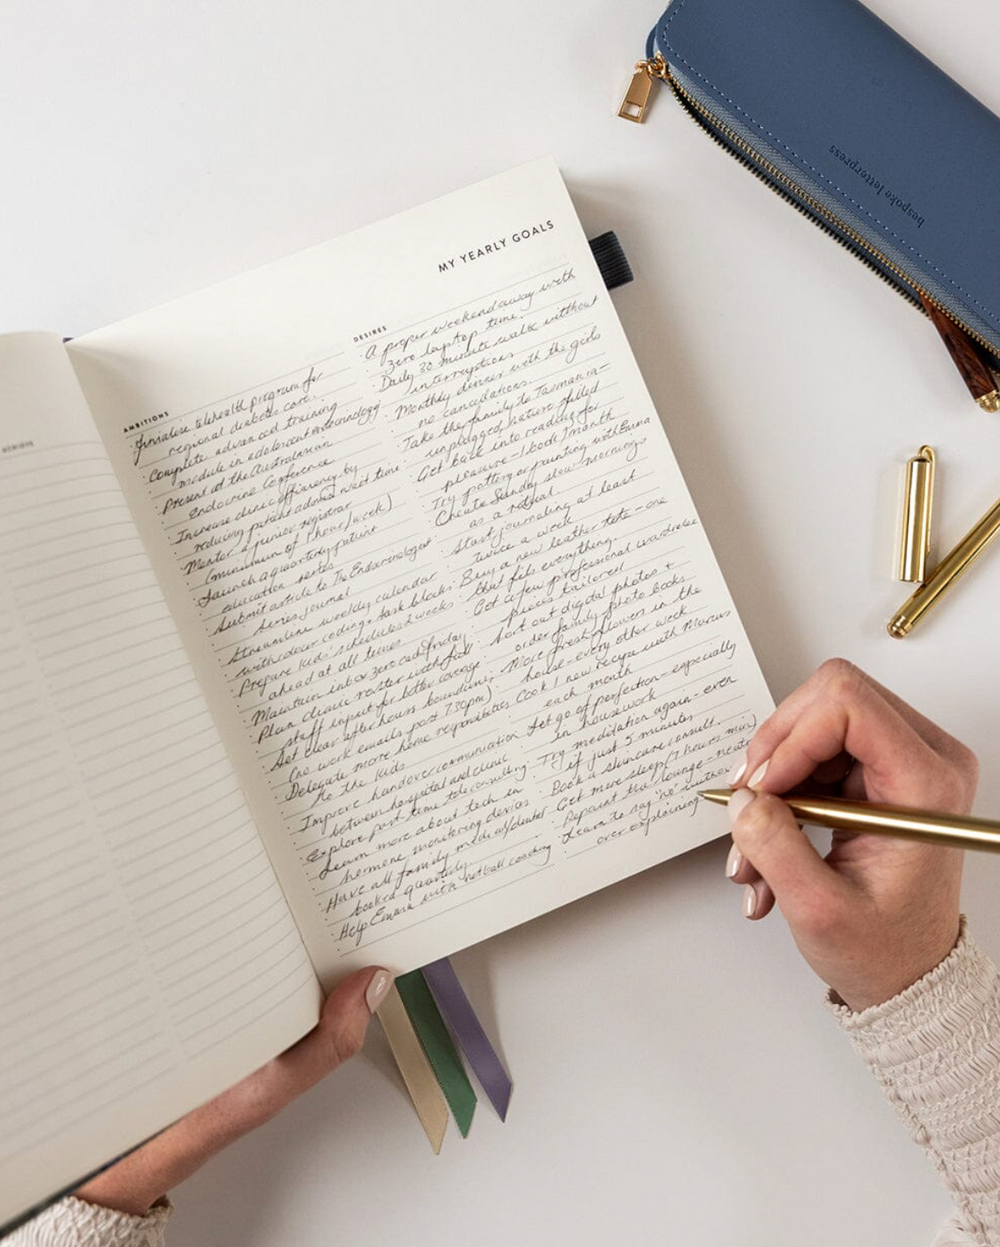 bespoke letterpress
MY YEARLY GOALS
AMBITIONS
Finalise telehealth program for
regional diabetes care.
Complete advanced training
module in adolescent endocrinology
Present at the Australasian
Endocrine Conference
Increase clinic efficiency by
reducing patient admin wait time
Mentor a junior registrar
(minimum of 1 hour/week)
Launch a quarterly patient
education series
Submit article to The Endocrinologist
Series journal
Streamline weekly calendar
with colour coding + task blocks
Prepare kids' schedules 2 weeks
ahead at all times
Maintain inbox zero each friday
Plan clinic roster with full
staff input for better coverage
Set clear after hours boundaries
(no work emails past 7.30pm)
Delegate more home responsibilities
to the kids
Improve handover communication
between hospital and clinic
Explore part time teleconsulting
Learn more about tech in
hormone monitoring devices
Have all family medical/dental
booked quarterly
Help Emma with netball coaching
DESIRES
A proper weekend away with
zero laptop time.
Daily 30 minute walk without
interruptions
Monthly dinner with the girls
no cancellations.
Take the family to Tasmania-
unplugged, nature filled
Get back into reading for
pleasure - 1 book/month
Try pottery or painting with Emma
Create Sunday slow mornings
as a ritual
Start journaling at least
twice a week
Buy a new leather tote - one
that fits everything.
Get a few professional wardrobe
pieces tailored
Sort out digital photos +
order family photo books.
More fresh flowers in the
house - every other week
Cook 1 new recipe with Marcus
each month
Let go of perfection - especially
in housework
Try meditation again - even
if just 5 minutes
Book a skincare consult.
Get more sleep (7 hours min)
Repaint the lounge -
Learn to say "no" without
over explaining